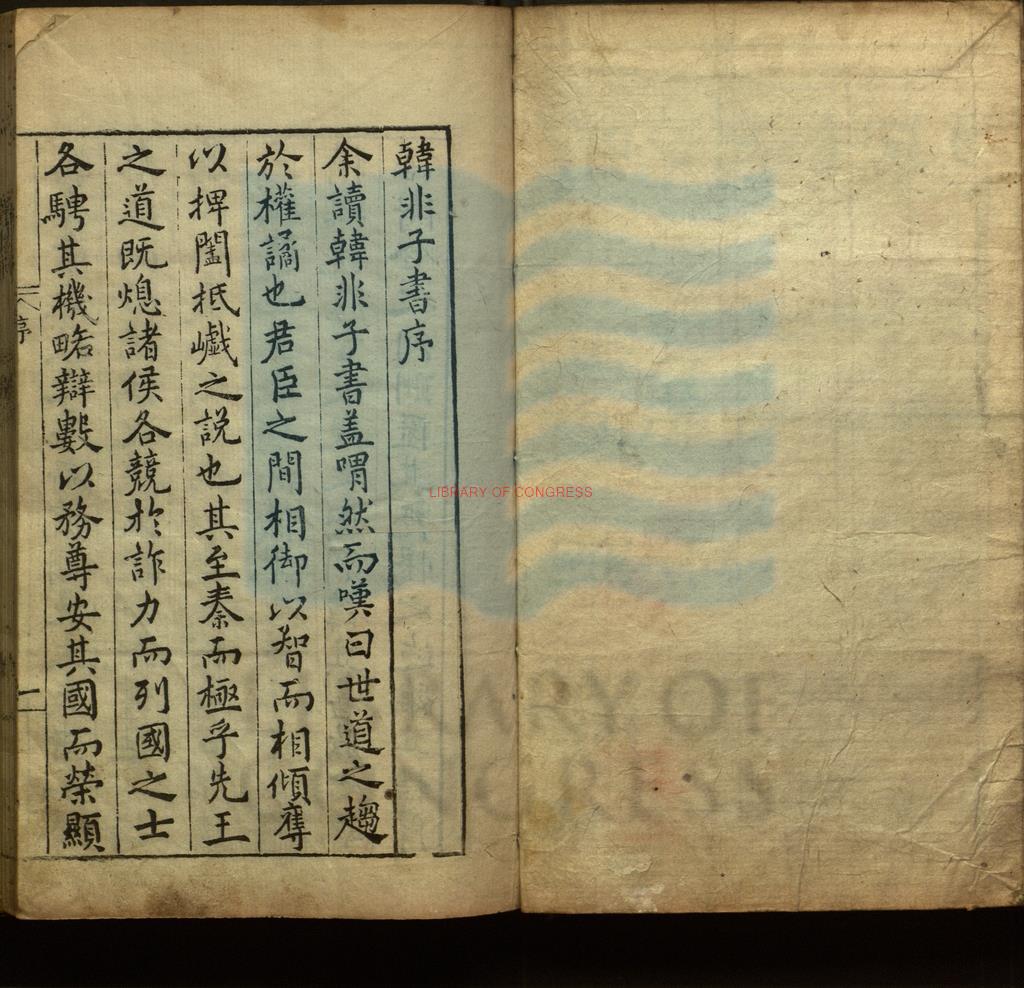 韓非子書序
余讀韓非子書盖喟然而嘆曰世道之趨
於權譎也君臣之間相御以智而相傾奪
以捭闔抵巇之說也其至秦而極乎先王
之道既熄諸侯各競於詐力而列國之士
各騁其機略辯數以務尊安其國而榮顯
序
LIBRARY OF CONGRESS